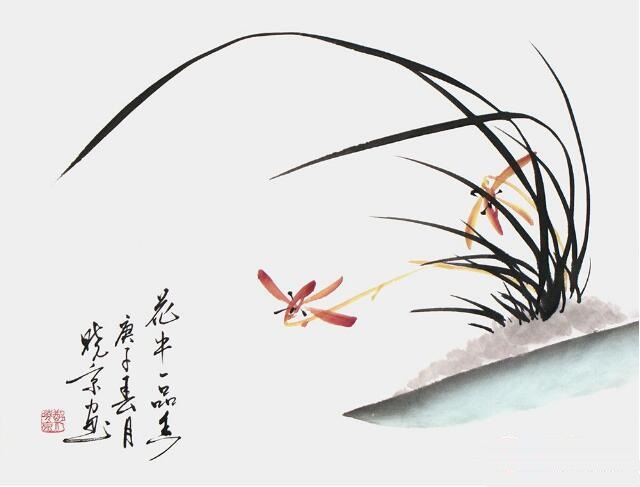 花中一品香
庚子春月
晓京画